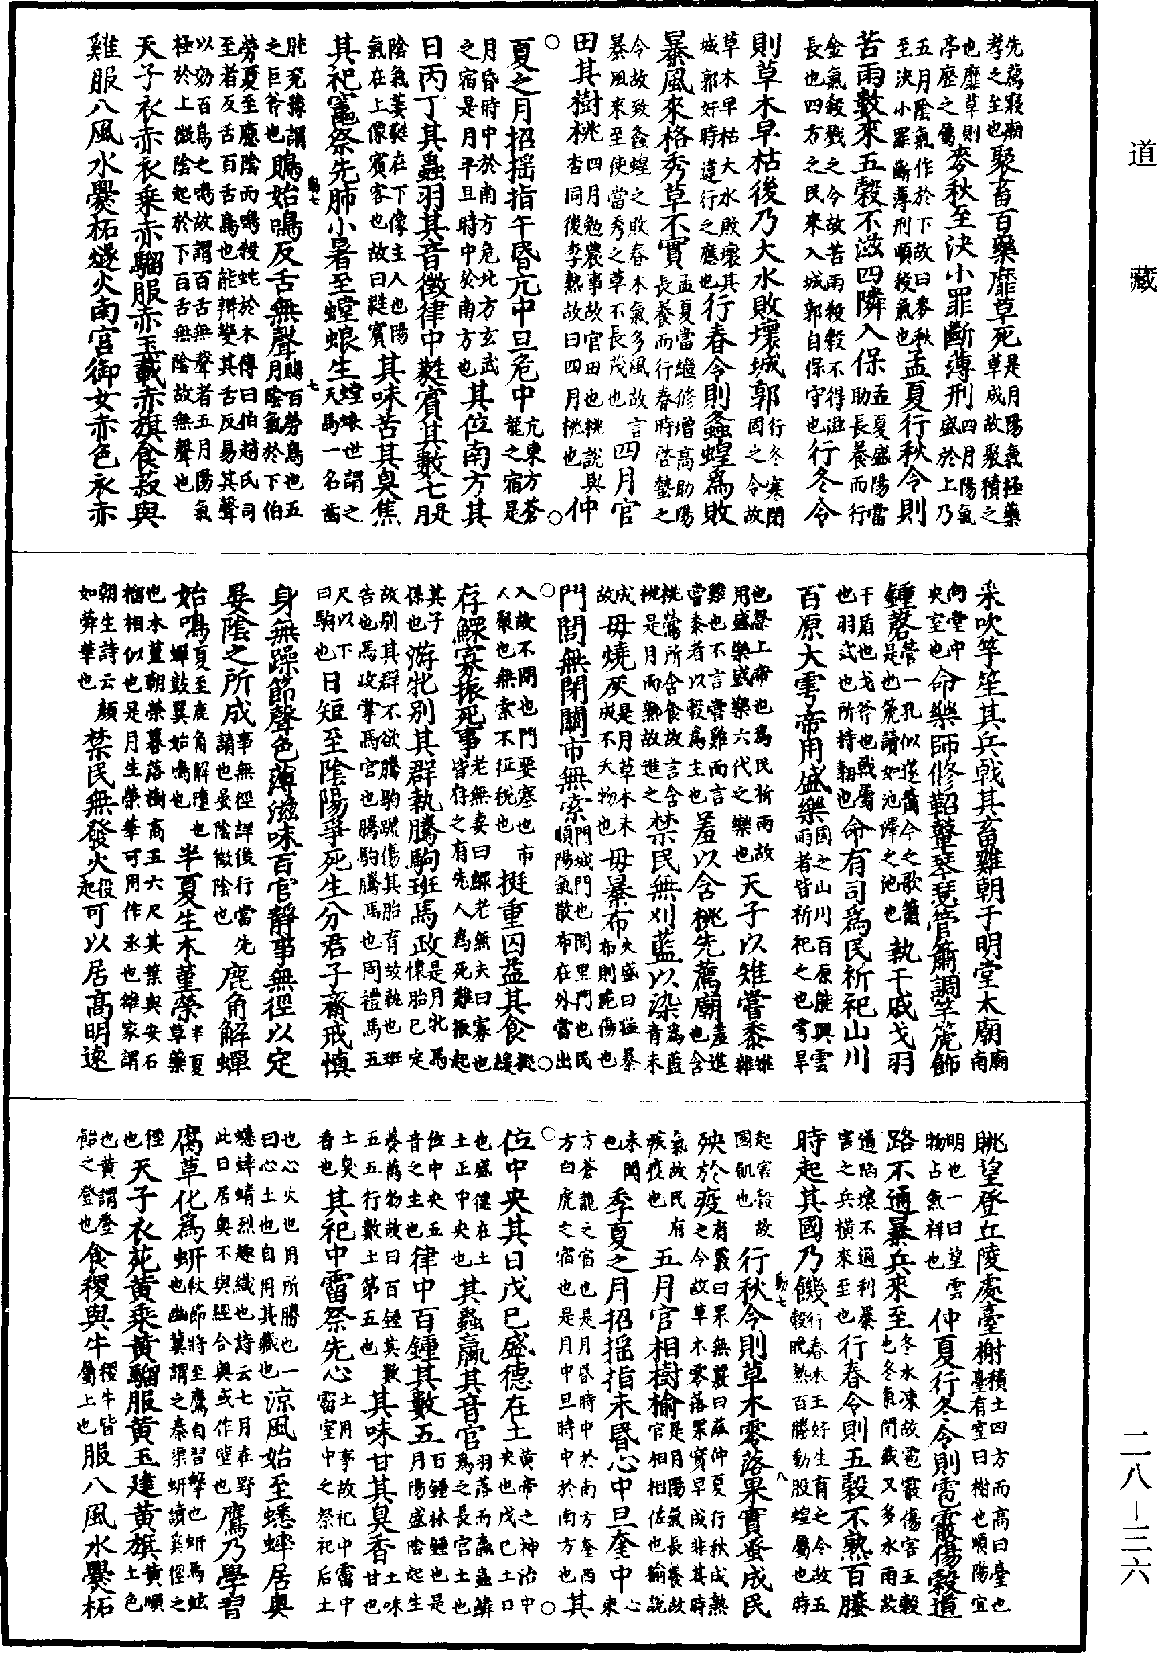 道藏
二八—三六
先薦寢廟孝之至也聚畜百藥靡草死是月陽氣極藥草成故聚積之
也靡草則亭歷之屬麥秋至決小罪斷薄刑四月陽氣盛於上乃
五月陰氣作於下故曰麥秋至決小罪斷薄刑順殺氣也孟夏行秋令則
苦雨數來五穀不滋四隣入保孟夏盛陽當助長養而行
金氣殺戮之令故苦雨殺穀不得滋長也四方之民來入城郭自保守也行冬令
則草木早枯後乃大水敗壞城郭行冬寒閉固之令故
草木早枯大水敗壞其城郭奸時違行之應也行春令則螽蝗爲敗
暴風來格秀草不實孟夏當繼修增高助陽長養而行春時啓蟄之
令故致螽蝗之敗春木氣多風故言暴風來至使當秀之草不長茂也四月官
田其樹桃四月勉農事故官田也桃說與杏同後李熟故曰四月桃也仲
夏之月招搖指午昏亢中旦危中亢東方蒼龍之宿是
月昏時中於南方危北方玄武之宿是月平旦時中於南方也其位南方其
日丙丁其蟲羽其音徵律中蕤賓其數七是月
陰氣萎蕤在下像主人也陽氣在上像賓客也故曰蕤賓其味苦其臭焦
其祀竈祭先肺小暑至螳蜋生螳蜋世謂之天馬一名齒
肬兗豫謂之巨斧也鵙始鳴反舌無聲鵙百勞鳥也五月陰氣於下伯
勞夏至應陰而鳴殺蛇於木傳曰伯趙氏司至者反舌百舌鳥也能辨變其舌反易其聲
以効百鳥之鳴故謂百舌無聲者五月陽氣極於上微陰起於下百舌無陰故無聲也
天子衣赤衣乘赤騮服赤玉載赤旗食菽與
雞服八風水爨柘燧火南宮御女赤色衣赤
采吹竽笙其兵戟其畜雞朝于明堂太廟廟南
向堂中央室也命樂師修鞀鞞琴瑟管簫調竽篪飾
鍾磬管一孔似篴簫今之歌簫是也篪讀如池澤之池也執干戚戈羽
干盾也戈斧也戰屬也羽武也所持翿也命有司爲民祈祀山川
百原大雩帝用盛樂國之山川百原能興雲雨者皆祈祀之也雩旱
也祭上帝也爲民祈雨故用盛樂盛樂六代之樂也天子以雉嘗黍雉
雞也不言嘗雞而言嘗黍者以穀爲主也羞以含桃先薦廟羞進也含
桃鶯所含食故言含桃是月而熟故進之禁民無刈藍以染爲藍青未
成故毋燒灰是月草木未成不夭物也毋暴布火盛日猛暴布則脆傷也
門閭無閉關市無索門城門也閭里門也民順陽氣散布在外當出
入故不閉也門要塞也市人聚也無索不征稅也挺重囚益其食挺緩也
存鰥寡振死事老無妻曰鰥老無夫曰寡也皆存之有先人爲死難振起
其子孫也游牝別其群執騰駒班馬政是月牝馬懷胎已定
故別其群不欲騰駒蹏傷其胎育故執也班告也馬政掌馬官也騰駒騰馬也周禮馬五
尺以下曰駒也日短至陰陽爭死生分君子齋戒慎
身無躁節聲色薄滋味百官靜事無徑以定
晏陰之所成事無徑詳後行當先請也晏陰微陰也鹿角解蟬
始鳴夏至鹿角解墮也蟬鼓翼始鳴也半夏生木堇榮半夏草藥
也木堇朝榮暮落樹高五六尺其葉與安石榴相似也是月生榮華可用作烝也雜家謂
朝生詩云顏如蕣華也禁民無發火發起可以居高明遠
眺望登丘陵處臺榭積土四方而高曰臺也臺有室曰榭也順陽宜
明也一曰望雲物占氛祥也仲夏行冬令則雹霰傷穀道
路不通暴兵來至冬水凍故雹霰傷害五穀也冬氣閉藏又多水雨故
道陷壞不通利暴害之兵橫來至也行春令則五穀不熟百螣
時起其國乃饑行春木王好生育之令故五穀晚熟百螣動股蝗屬也時
起害穀故國飢也行秋令則草木零落果實蚤成民
殃於疫有覈曰果無覈曰蓏仲夏行秋成熟之令故草木零落果實早成非其時
氣故民有疾疫也五月官相樹榆是月陽氣長養故官相相佐也榆說
未聞也季夏之月招搖指未昏心中旦奎中心東
方蒼龍之宿也是月昏時中於南方奎西方白虎之宿也是月中旦時中於南方也其
位中央其日戊己盛德在土黃帝之神治中央也戊己土日
也盛德在土土正中央也其蟲蠃其音宮羽落而蠃蟲麟爲之長宮土也
位中央五音之主也律中百鍾其數五百鍾林鍾也是月陽盛陰起生
養萬物故曰百鍾其數五五行數土第五也其味甘其臭香甘土味也
土臭香也其祀中霤祭先心土用事故祀中霤中霤室中之祭祀后土
也心火也用所勝也一曰心土也自用其藏也涼風始至蟋蟀居奧
蟋蟀蜻烈趣織也詩云七月在野此曰居奧不與經合奧或作壁也鷹乃學習
腐草化爲蚈秋節將至鷹自習擊也蚈馬蚿也幽冀謂之秦渠蚈讀奚徑之
徑也天子衣苑黃乘黃騮服黃玉建黃旗黃順土色
也黃謂麏飴之登也食稷與牛稷牛皆屬土也服八風水爨柘